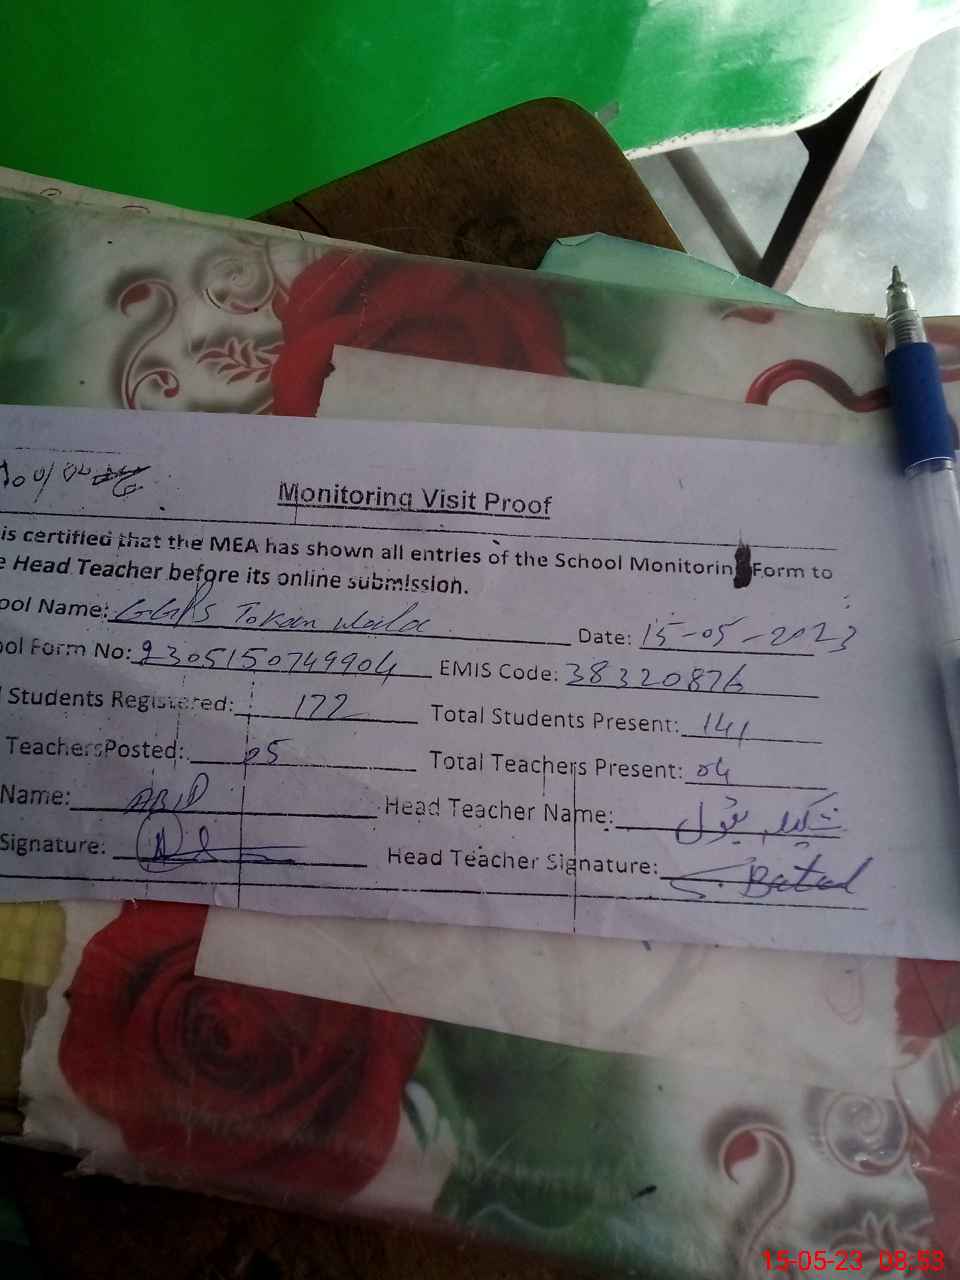 Monitoring Visit Proof
is certified that the MEA has shown all entries of the School Monitorin Form to
e Head Teacher before its online submission.
ool Name: GGPS Tokan Wala Date: 15-05-2023
ool Form No: 2305150749904 EMIS Code: 38320876
Students Registered: 172 Total Students Present: 141
TeachersPosted: 05 Total Teachers Present: 04
Name: ABID Head Teacher Name: شکیلہ بتول
Signature: Head Teacher Signature: S. Batool
15-05-23 08:53